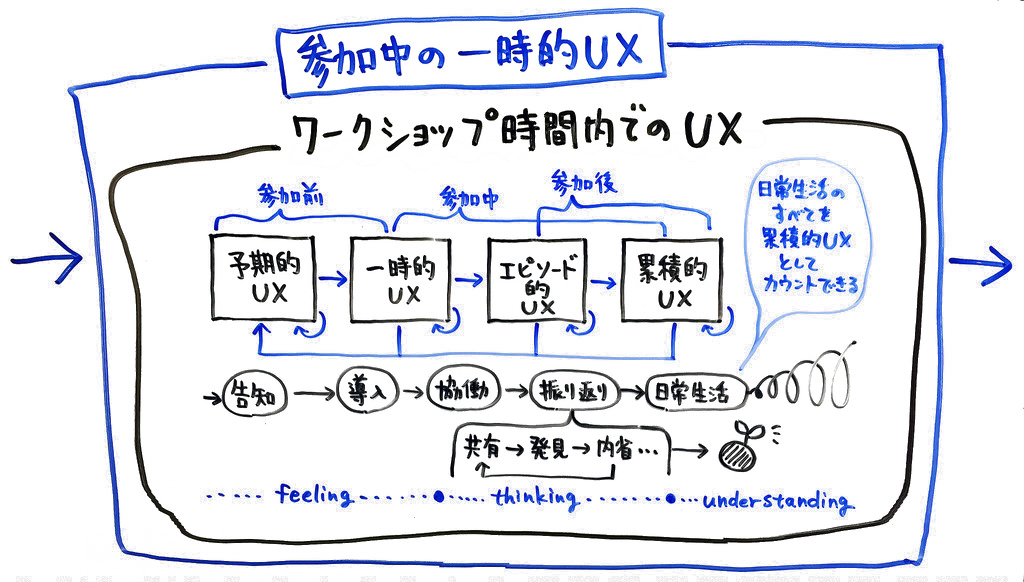 参加中の一時的UX
ワークショップ時間内でのUX
参加前
参加中
参加後
日常生活の
すべてを
累積的UX
として
カウントできる
予期的
UX
一時的
UX
エピソード
的
UX
累積的
UX
告知
導入
協働
振り返り
日常生活
共有→発見→内省…
feeling
thinking
understanding